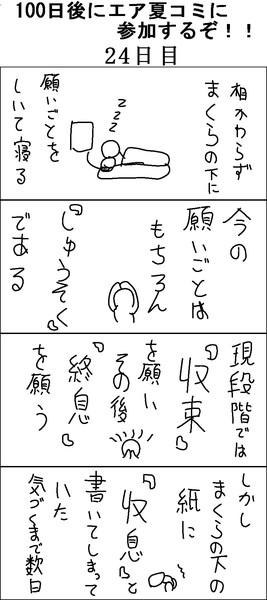 100日後にエア夏コミに
参加するぞ！！
24日目
相かわらず
まくらの下に
zzz
願いごとを
しいて寝る
今の
願いごとは
もちろん
『しゅうそく』
である
現段階では
『収束』
を願い
その後
『終息』
を願う
しかし
まくらの下の
紙に
『収息』と
書いてしまって
いた
気づくまで数日